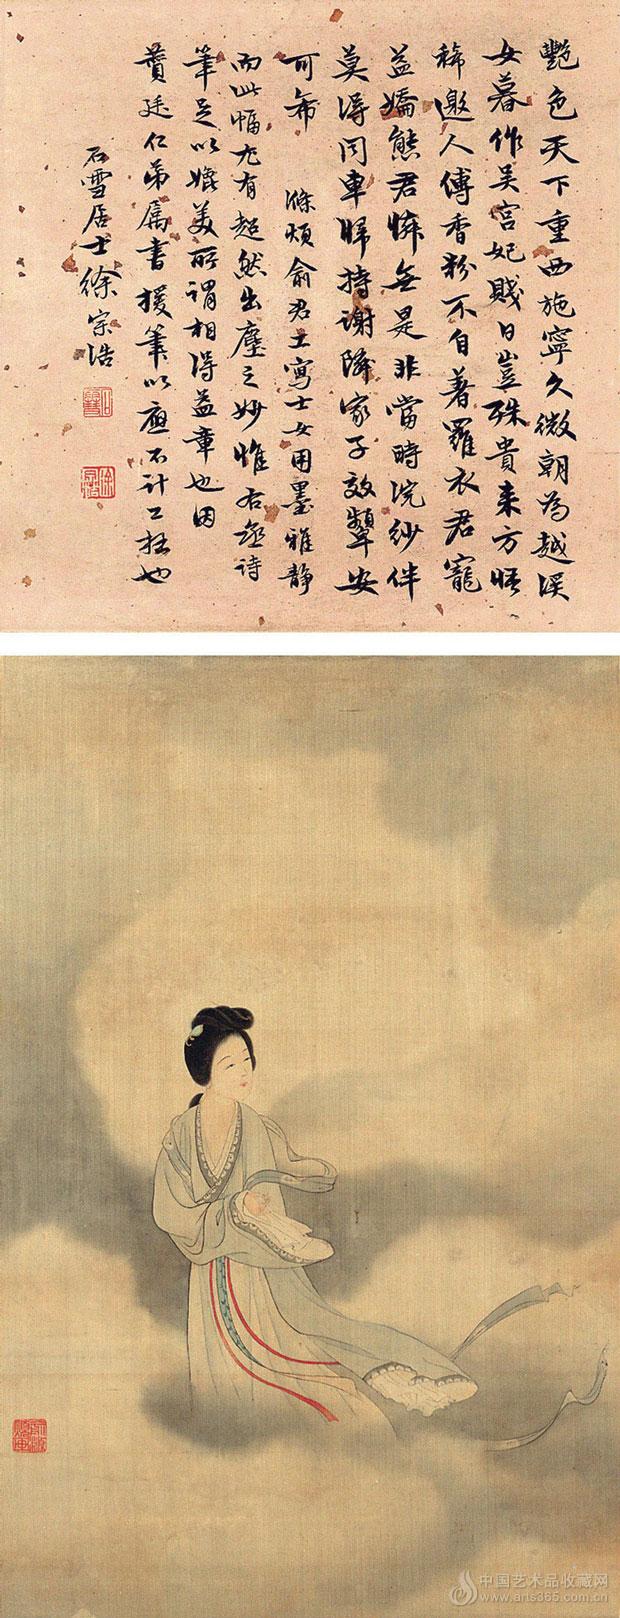 艷色天下重西施寧久微朝為越溪
女暮作吳宮妃賤日豈殊貴来方悟
稀邀人傅香粉不自著羅衣君寵
益嬌態君憐無是非當時浣紗伴
莫得同車歸持謝鄰家子效顰安
可希 滌煩俞君工寫士女用墨雅静
而此幅尤有超然出塵之妙惟右丞詩
筆足以媲美所謂相得益章也因
廷仁弟属書援筆以應不計工拙也
石雪居士徐宗浩
中国艺术品收藏网
www.arts365.com.cn